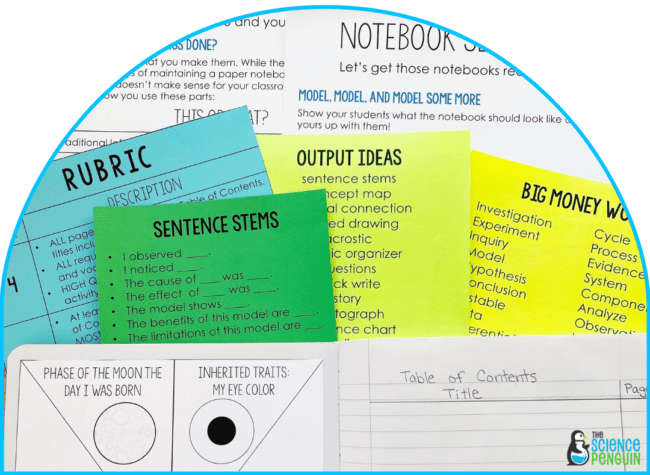 and you
DONE?
at you make them. While the
of maintaining a paper notebo
doesn't make sense for your classro
ow you use these parts:
THIS OR THAT?
NOTEBOOK SE
Let's get those notebooks rea
MODEL, MODEL, AND MODEL SOME MORE
Show your students what the notebook should look like a
yours up with them!
RUBRIC
DESCRIPTION
Table of Contents.
ALL page
titles inclu
ALL requ
and voc
HIGH Q
activity
4
At lea
of Co
MOS
SENTENCE STEMS
• I observed ____.
• I noticed ____.
• The cause of ____ was ____.
• The effect of ____ was ____.
• The model shows ____.
• The benefits of this model are ____.
• The limitations of this model are ____.
OUTPUT IDEAS
sentence stems
ncept map
al connection
ed drawing
acrostic
ic organizer
uestions
ck write
story
tograph
ence chart
BIG MONEY WO
Investigation
Experiment
Inquiry
Model
ypothesis
onclusion
stable
ta
erenti
Cycle
Process
Evidence
System
Compone
Analyze
Observati
PHASE OF THE MOON THE
DAY I WAS BORN
INHERITED TRAITS:
MY EYE COLOR
Table of Contents
Title
Pag
THE
SCIENCE
PENGUIN